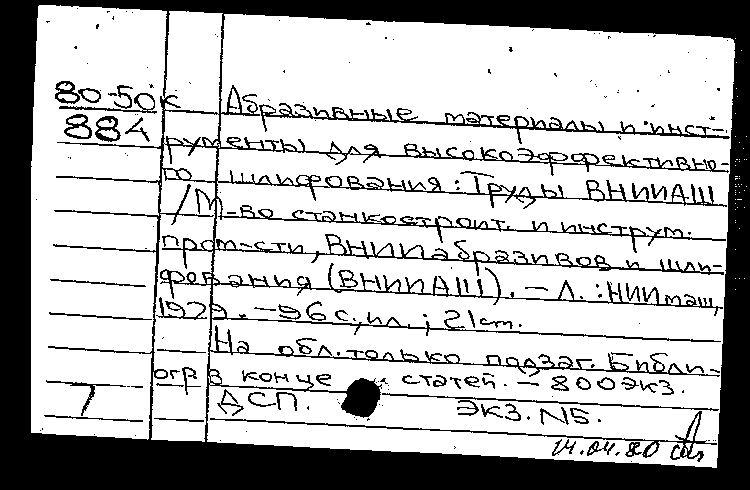 80-50к Абразивные материалы и инст-
884 рументы для высокоэффективно-
го шлифования: Труды ВНИИАШ
/М-во станкостроит. и инструм.
пром-сти, ВНИИ абразивов и шли-
фования (ВНИИАШ). – Л.: НИИмаш,
1979. – 96 с., ил.; 21 см.
На обл. только подзаг. Библи-
огр в конце статей. – 800 экз.
7 ДСП. экз. N5.
14.04.80